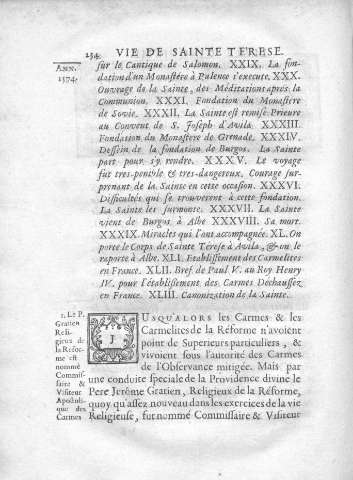 234 VIE DE SAINTE TERESE.
ANN.
1574.
sur le Cantique de Salomon. XXIX. La fon-
dation d'un Monastére à Palence s'execute. XXX.
Ouvrage de la Sainte, des Méditations aprés la
Communion. XXXI. Fondation du Monastére
de Sovie. XXXII. La Sainte est remise Prieure
au Convent de S. Joseph d'Avila. XXXIII.
Fondation du Monastére de Grenade. XXXIV.
Dessein de la fondation de Burgos. La Sainte
part pour s'y rendre. XXXV. Le voyage
fut tres-penible & tres-dangereux. Courage sur-
prenant de la Sainte en cette occasion. XXXVI.
Difficultés qui se trouverent à cette fondation.
La Sainte les surmonte. XXXVII. La Sainte
vient de Burgos à Albe. XXXVIII. Sa mort.
XXXIX. Miracles qui l'ont accompagnée. XL. On
porte le Corps de Sainte Terese à Avila, & on le
raporte à Albe. XLI. Etablissement des Carmelites
en France. XLII. Bref de Paul V. au Roy Henry
IV. pour l'établissement des Carmes Déchaussez
en France. XLIII. Canonization de la Sainte.
1. Le P.
Gratien
Reli-
gieux de
la Réfor-
me est
nommé
Commis-
saire &
Visiteur
Apostoli-
que des
Carmes
JUSQU'ALORS les Carmes & les
Carmelites de la Réforme n'avoient
point de Superieurs particuliers, &
vivoient sous l'autorité des Carmes
de l'Observance mitigée. Mais par
une conduite speciale de la Providence divine le
Pere Jerôme Gratien, Religieux de la Réforme,
quoy qu'assez nouveau dans les exercices de la vie
Religieuse, fut nommé Commissaire & Visiteur